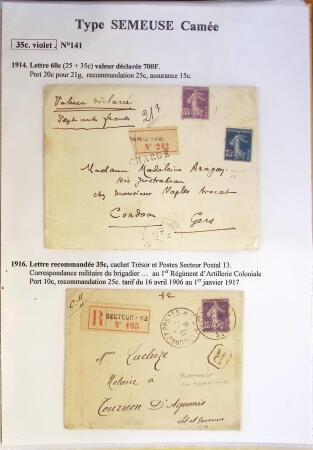 Type SEMEUSE Camée
35c. violet. N°141
1914. Lettre 60c (25 + 35c) valeur déclarée 700F.
Port 20c pour 21g, recommandation 25c, assurance 15c.
Valeur déclarée
Sept cents francs
21g
N° 242
CHARGÉ
Madame Madeleine Aragon
chez Monsieur Naples Avocat
Condom Gers
1916. Lettre recommandée 35c, cachet Trésor et Postes Secteur Postal 13.
Correspondance militaire du brigadier ... au 1er Régiment d'Artillerie Coloniale
Port 10c, recommandation 25c. tarif du 16 avril 1906 au 1er janvier 1917
R
SECTEUR - 13
N° 195
Notaire à
Tournon D'Agenais
Lot et Garonne